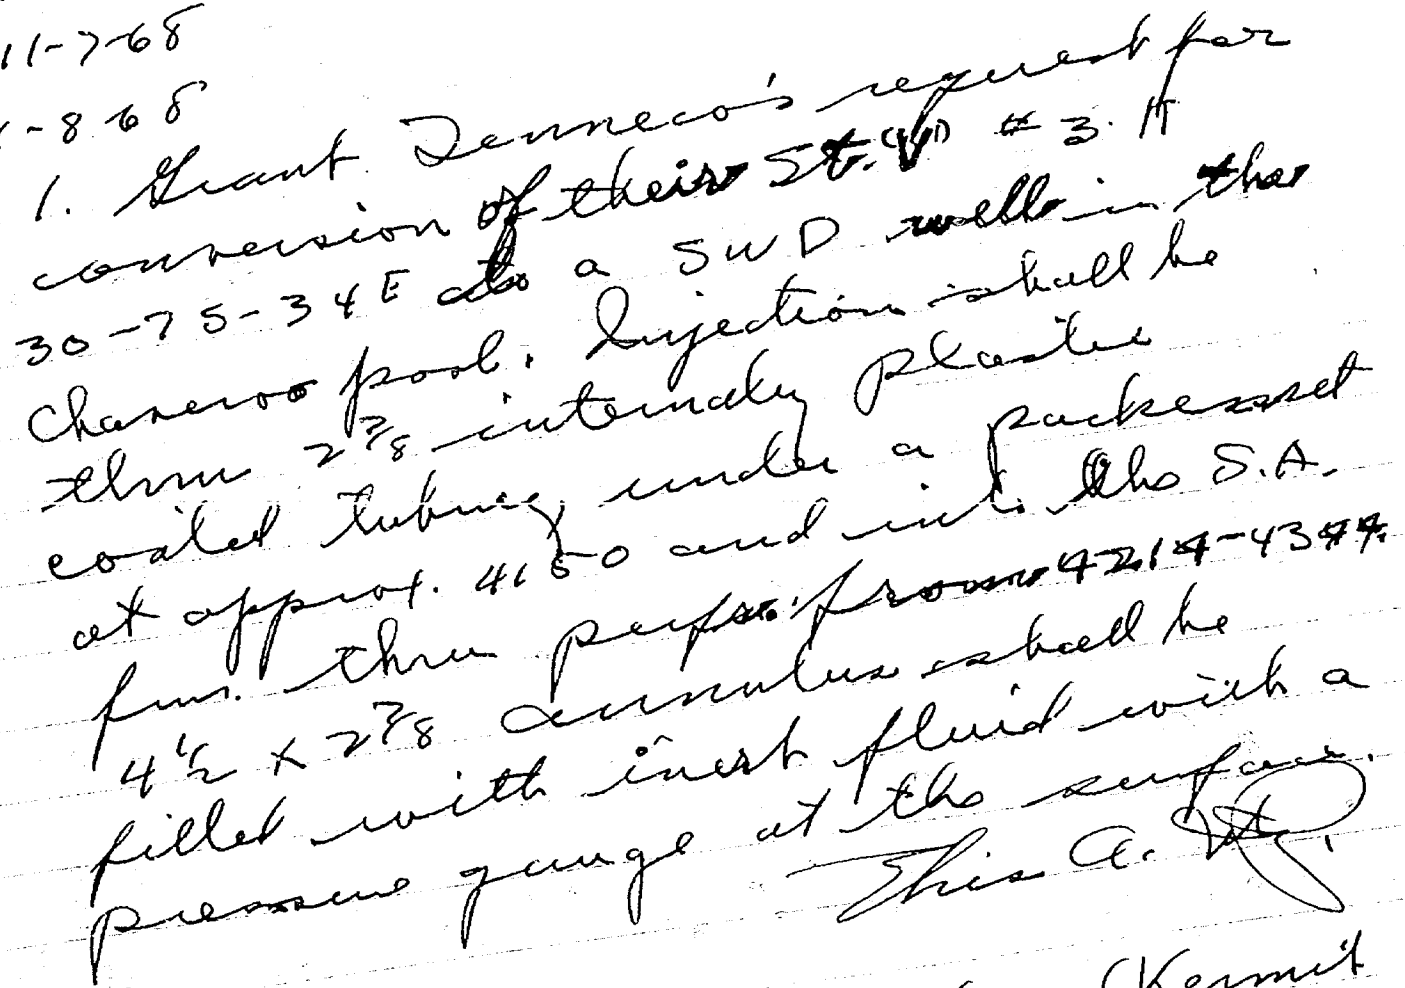 11-7-68
-8 68
1. Grant Tenneco's request for
conversion of their St. "V" # 3. H
30-7S-34E to a SWD well in the
Chaveroo pool. Injection shall be
thru 2 7/8 internally plastic
coated tubing under a packer set
at approx. 4150 and into the S.A.
fm. thru perfs. from 4214-4344.
4 1/2 x 2 7/8 annulus shall be
filled with inert fluid with a
pressure gauge at the surface.
A.
(Kermit